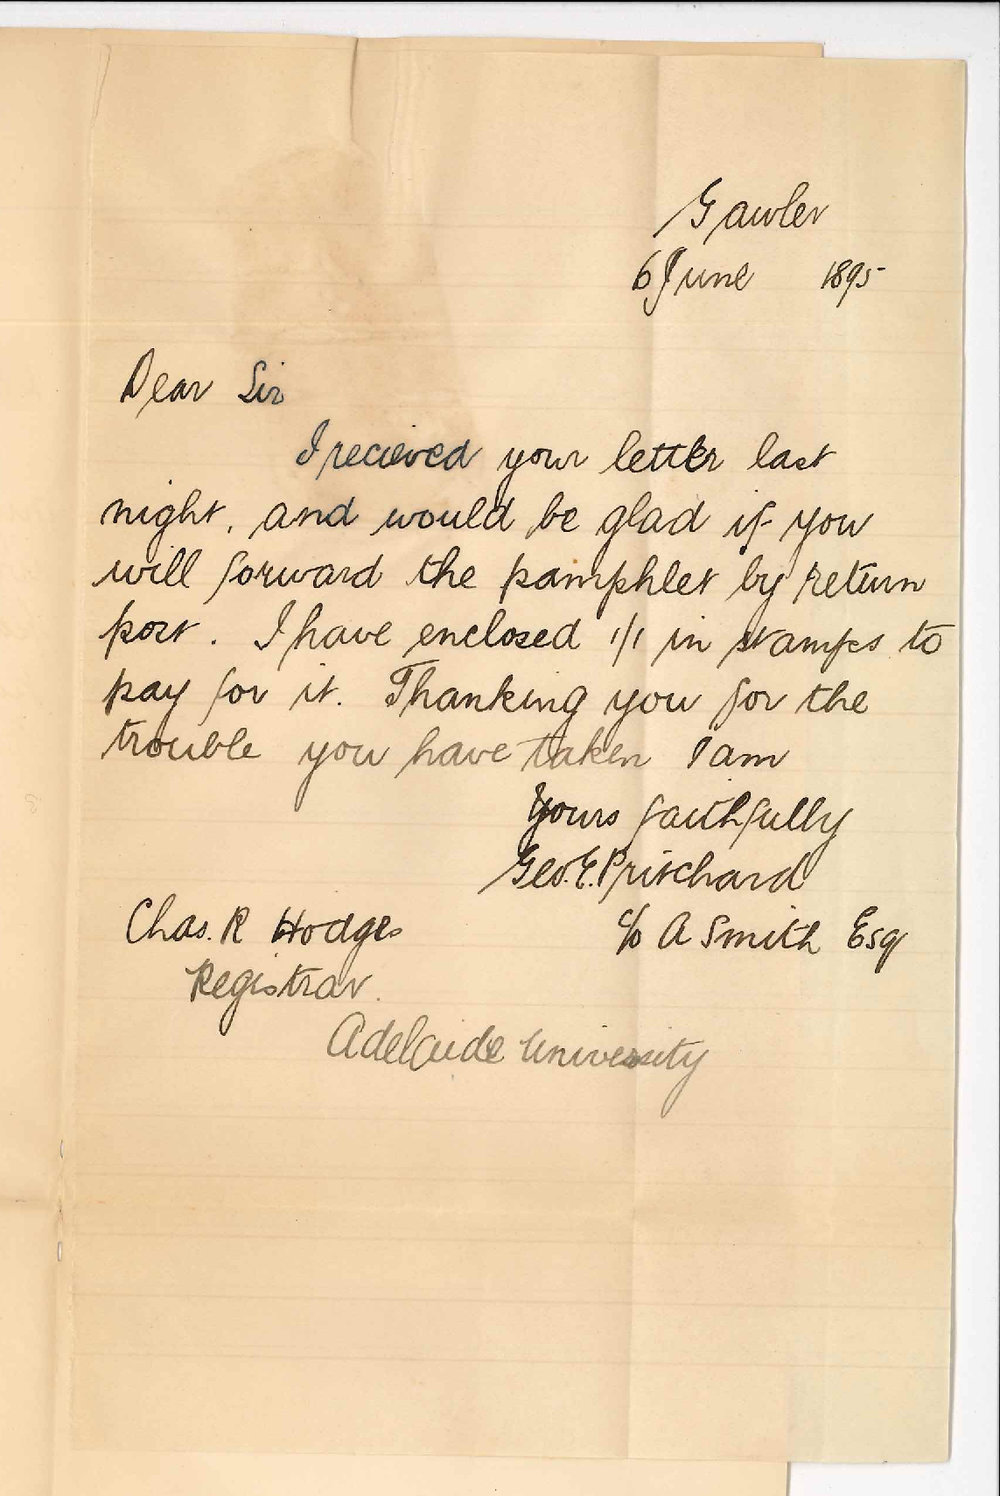 Gawler
6 June 1895
Dear Sir
I recieved your letter last
night, and would be glad if you
will forward the pamphlet by return
post. I have enclosed 1/1 in stamps to
pay for it. Thanking you for the
trouble you have taken I am
Yours faithfully
Geo. E. Pritchard
Chas. R Hodges c/o A Smith Esq
Registrar.
Adelaide University